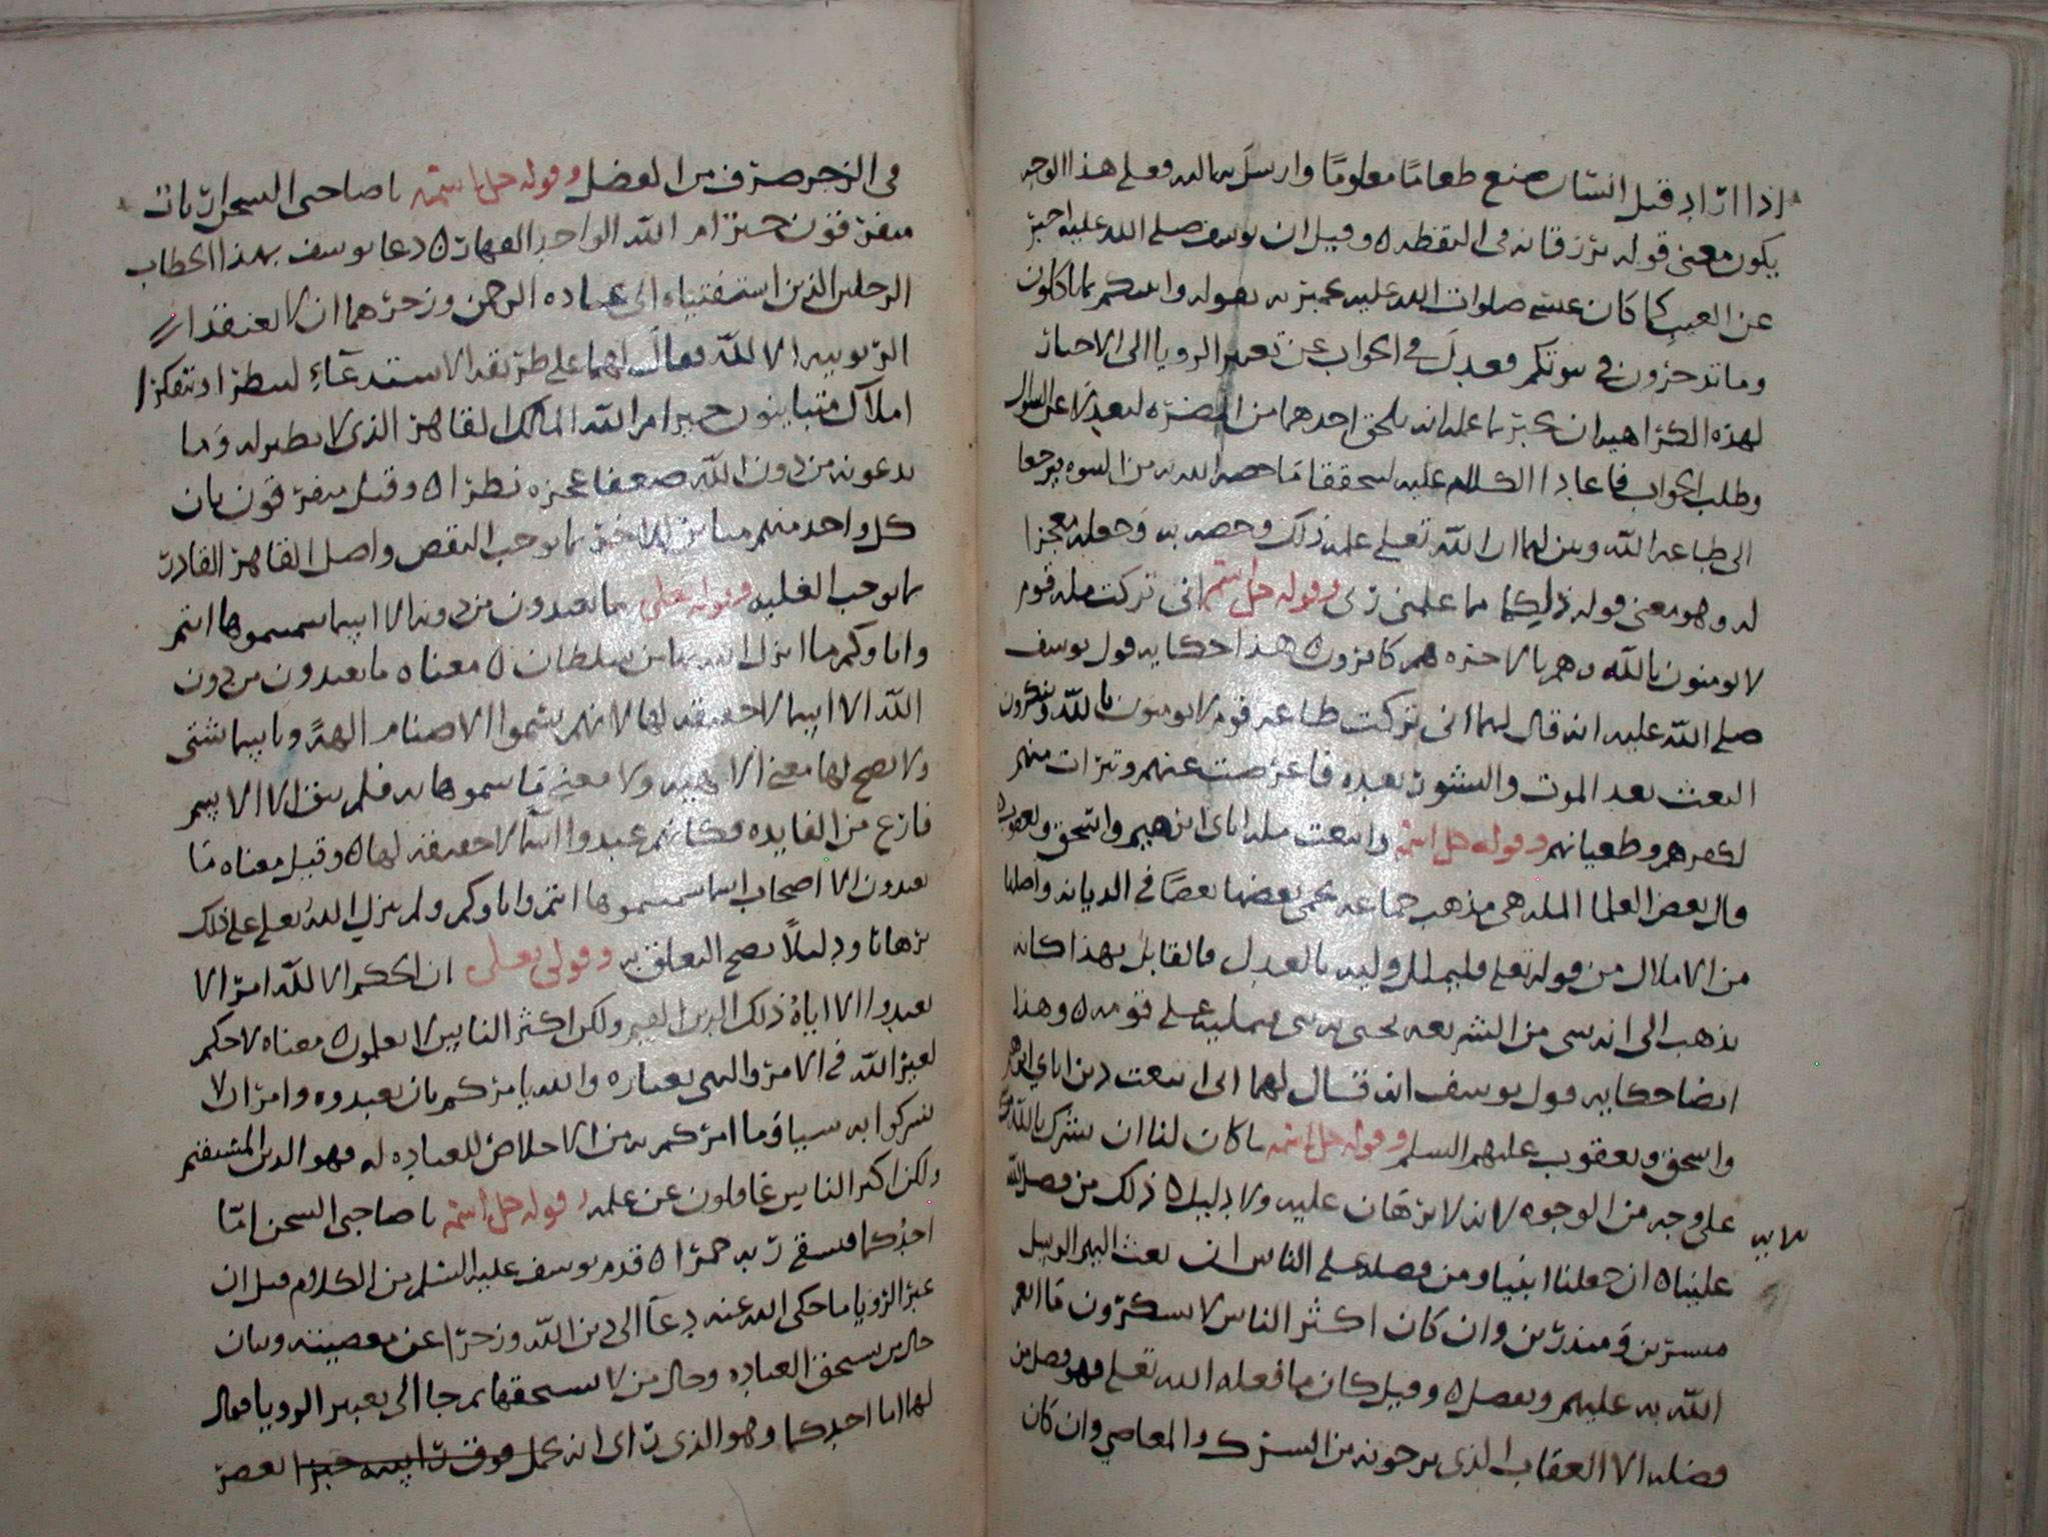 اذا اراد قتل انسان صنع طعاما معلوما وارسل به اليه فعلى هذا الوجه
يكون معنى قوله ترزقانه في اليقظه ٥ وقيل ان يوسف صلى الله عليه اخبر
عن الغيب كما كان عيسى صلوات الله عليه يخبر به بقوله وانبئكم بما تاكلون
وما تدخرون في بيوتكم فعدل في الجواب عن تعبير الرويا الى الاخبار
لهذه الكراهيه ان يخبر بما علم انه يلحق احدهما من المضره ليعدلا عن السوال
وطلب الجواب فاعادا الكلام عليه ليتحققا ما خصه الله به من النبوه يرجعا
الى طاعه الله وبين لهما ان الله تعلى علمه ذلك وخصه به وجعله معجزا
له وهو معنى قوله ذلكما مما علمني ربي وقوله جل اسمه اني تركت مله قوم
لا يومنون بالله وهم بالاخره هم كافرون ٥ هذا حكايه قول يوسف
صلى الله عليه انه قال لهما اني تركت طاعه قوم لا يومنون بالله وينكرون
البعث بعد الموت والنشور بعده فاعرضت عنهم وتبرات منهم
لكفرهم وطغيانهم وقوله جل اسمه واتبعت مله اباي ابرهيم واسحق ويعقوب ٥
قال بعض العلما المله هي مذهب جماعه يحمي بعضها بعضا في الديانه واصلها
من الاملال من قوله تعلى فليملل وليه بالعدل فالقايل بهذا كانه
يذهب الى انه شي من الشريعه يحيى به نبي يمليه على قومه ٥ وهذا
ايضا حكايه قول يوسف انه قال لهما اني اتبعت دين اباي ابرهيم
واسحق ويعقوب عليهم السلم وقوله جل اسمه ما كان لنا ان نشرك بالله من
على وجه من الوجوه لانه لا برهان عليه ولا دليل ٥ ذلك من فضل الله
علينا ٥ ان جعلنا انبيا ومن فضله على الناس ان بعث اليهم الرسل
مبشرين ومنذرين وان كان اكثر الناس لا يشكرون ما انعم
الله به عليهم وتفضل ٥ وقيل كان ما فعله الله تعلى فهو فضل من
فضله الا العقاب الذي يرجونه من الشرك والمعاصي وان كان
في الزجر صرف من الفضل وقوله جل اسمه يا صاحبي السجن ارباب
متفرقون خير ام الله الواحد القهار ٥ دعا يوسف بهذا الخطاب
الرجلين الذين استفتياه الى عباده الرحمن وزجرهما ان لا يعتقدا
الربوبيه الا لله فقال لهما على طريقه الاستدعاء لينظرا ويتفكرا
املاك متباينون خير ام الله المالك القاهر الذي لا نظير له وما
يدعونه من دون الله ضعفا عجزه نظرا ٥ وقيل متفرقون بان
كل واحد منهم مباين للاخر بما يوجب النقص واصل القاهر القادر
بما يوجب الغلبه وقوله تعلى ما تعبدون من دونه الا اسما سميتموها انتم
واباوكم ما انزل الله بها من سلطان ٥ معناه ما تعبدون من دون
الله الا اسما لا حقيقه لها لانهم سموا الاصنام الهة وباسما شتى
ولا يصح لها معنى الالهيه ولا معنى ما سموها به فلم يبق الا الاسم
فارغ من الفايده فكانهم عبدوا اسما لا حقيقه لها ٥ وقيل معناه ما
تعبدون الا اصحاب اسما سميتموها انتم واباوكم ولم ينزل الله تعلى على ذلك
برهانا ودليلا يصح التعلق به وقولى تعلى ان الحكم الا لله امر الا
تعبدوا الا اياه ذلك الدين القيم ولكن اكثر الناس لا يعلمون ٥ معناه لا حكم
لغير الله في الامر والنهي بعباره والله يامركم بان تعبدوه وامر الا
تشركوا به شيا وما امركم به من الاخلاص للعباده له فهو الدين المستقيم
ولكن اكثر الناس غافلون عن علمه وقوله جل اسمه يا صاحبي السجن اما
احدكما فيسقي ربه خمرا ٥ قدم يوسف عليه السلم من الكلام قبل ان
عبر الرويا ما حكى الله عنه دعا الى دين الله وزجرا عن معصيته وبيان
حال من يستحق العباده وحال من لا يستحقها ثم جا الى تعبير الرويا فقال
لهما اما احدكما وهو الذي راى انه يحمل فوق راسه خبزا يعصر